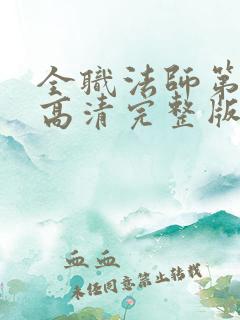 全职法师第
高清完整版
血血
未经同意禁止转载